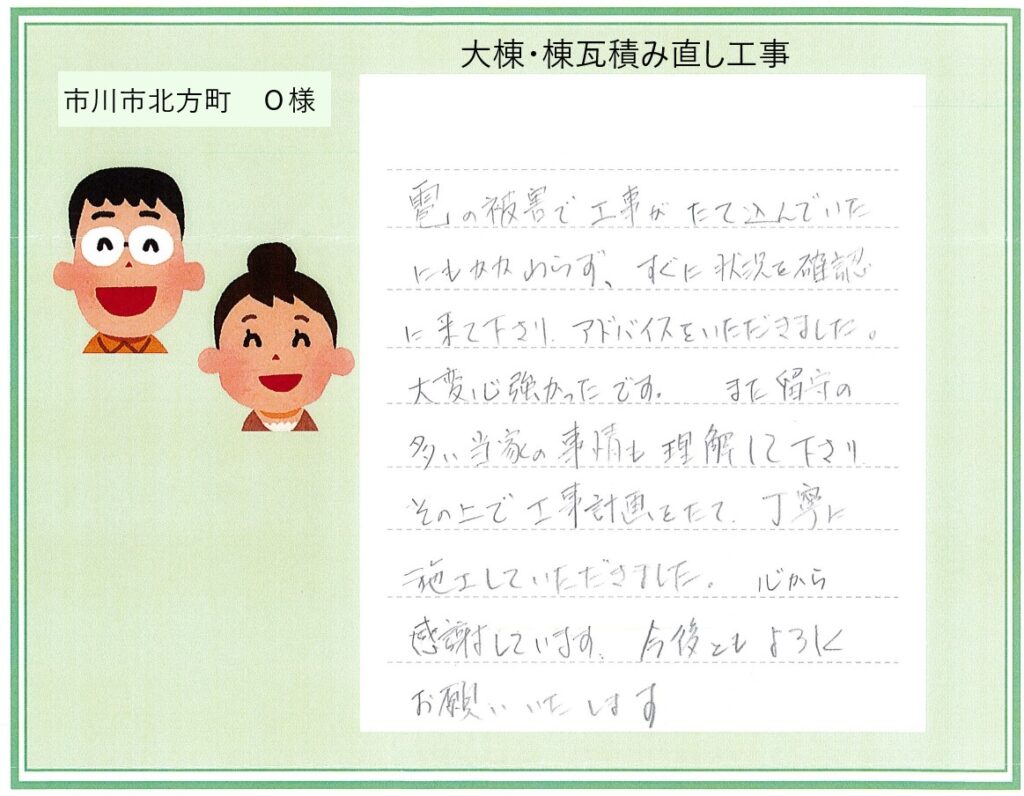 大棟・棟瓦積み直し工事
市川市北方町　O様
雹の被害で工事がたて込んでいた
にもかかわらず、すぐに状況を確認
に来て下さり、アドバイスをいただきました。
大変心強かったです。　また留守の
多い当家の事情も理解して下さり
その上で工事計画をたて、丁寧に
施工していただきました。　心から
感謝しています。今後ともよろしく
お願いいたします